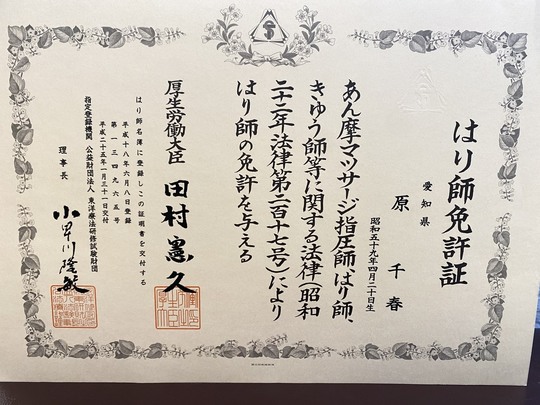 はり師免許証
愛知県
原千春
昭和五十九年四月二十日生
あん摩マツサージ指圧師、はり師、
きゆう師等に関する法律(昭和
二十二年法律第二百十七号)により
はり師の免許を与える
厚生労働大臣 田村憲久
はり師名簿に登録しこの証明書を交付する
平成十八年六月八日登録
第一三四九六五号
平成二十五年一月三十一日交付
指定登録機関 公益財団法人 東洋療法研修試験財団
理事長